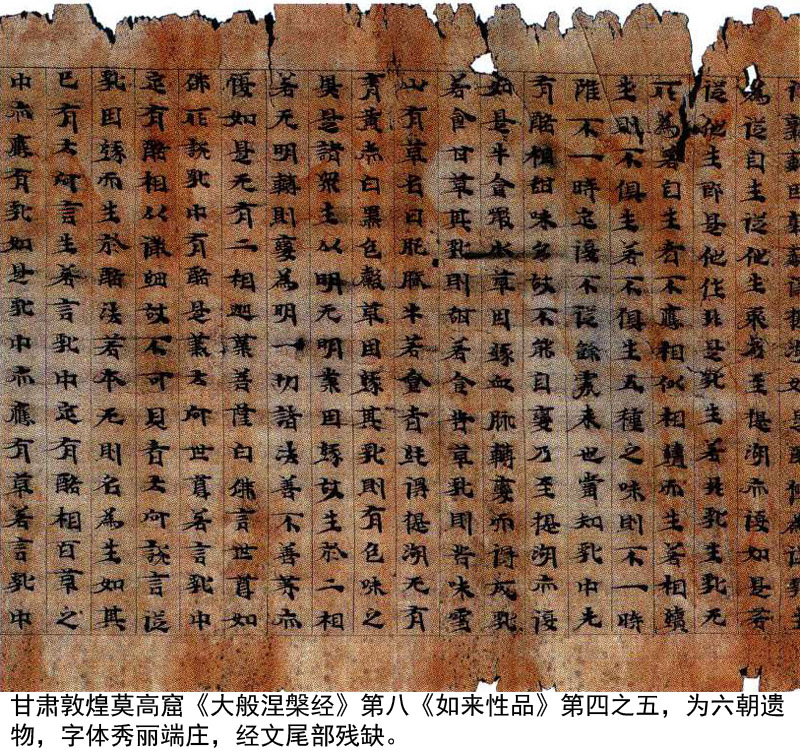 為從自生從他生乎乃至醍醐亦復如是若
從他生即是他作非是乳生若非乳生乳无
所為若自生者不應相似相續而生若相續
生則不俱生若不俱生五種之味則不一時
雖不一時定復不從餘處來也當知乳中先
有酪相甜味多故不能自變乃至醍醐亦復
如是牛食噉水草因緣血脈轉變而得成乳
若食甘草其乳則甜若食苦草乳則苦味雪
山有草名曰肥膩牛若食者純得醍醐无有
青黃赤白黑色穀草因緣其乳則有色味之
異是諸衆生以明无明業因緣故生於二相
若无明轉則變為明一切諸法善不善等亦
復如是无有二相迦葉菩薩白佛言世尊如
佛所說乳中有酪是義云何世尊若言乳中
定有酪相以微細故不可見者云何說言從
乳因緣而生於酪法若本无則名為生如其
已有云何言生若言乳中定有酪相百草之
中亦應有乳如是乳中亦應有草若言乳中
甘肃敦煌莫高窟《大般涅槃经》第八《如来性品》第四之五，为六朝遗
物，字体秀丽端庄，经文尾部残缺。